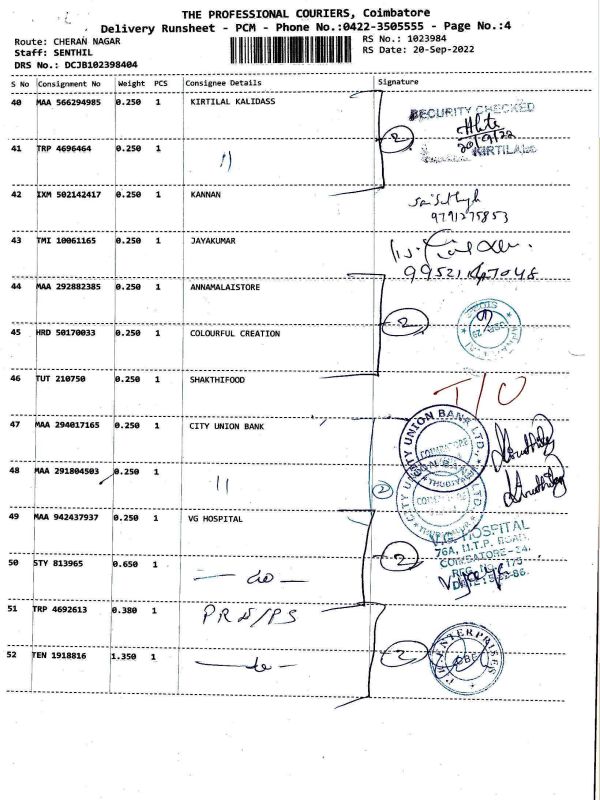 THE PROFESSIONAL COURIERS, Coimbatore
Delivery Runsheet - PCM - Phone No.:0422-3505555 - Page No.:4
Route: CHERAN NAGAR
Staff: SENTHIL
DRS No.: DCJB102398404
RS No.: 1023984
RS Date: 20-Sep-2022
S No Consignment No Weight PCS Consignee Details Signature
40 MAA 566294985 0.250 1 KIRTILAL KALIDASS
SECURITY CHECKED
20/9/22
KIRTILALS
2
41 TRP 4696464 0.250 1 11
42 IXM 502142417 0.250 1 KANNAN
9791275853
43 TMI 10061165 0.250 1 JAYAKUMAR
44 MAA 292882385 0.250 1 ANNAMALAISTORE
2
45 HRD 50170033 0.250 1 COLOURFUL CREATION
46 TUT 210750 0.250 1 SHAKTHIFOOD
T/O
47 MAA 294017165 0.250 1 CITY UNION BANK
CITY UNION BANK LTD.
COIMBATORE
48 MAA 291804503 0.250 1 11
2
CITY UNION BANK LTD.
49 MAA 942437937 0.250 1 VG HOSPITAL
V.G. HOSPITAL
76A, M.T.P. ROAD,
COIMBATORE-24.
2
50 STY 813965 0.650 1 - do -
51 TRP 4692613 0.380 1 PRN/PS
52 TEN 1918816 1.350 1
2
ENTERPRISES
CBE